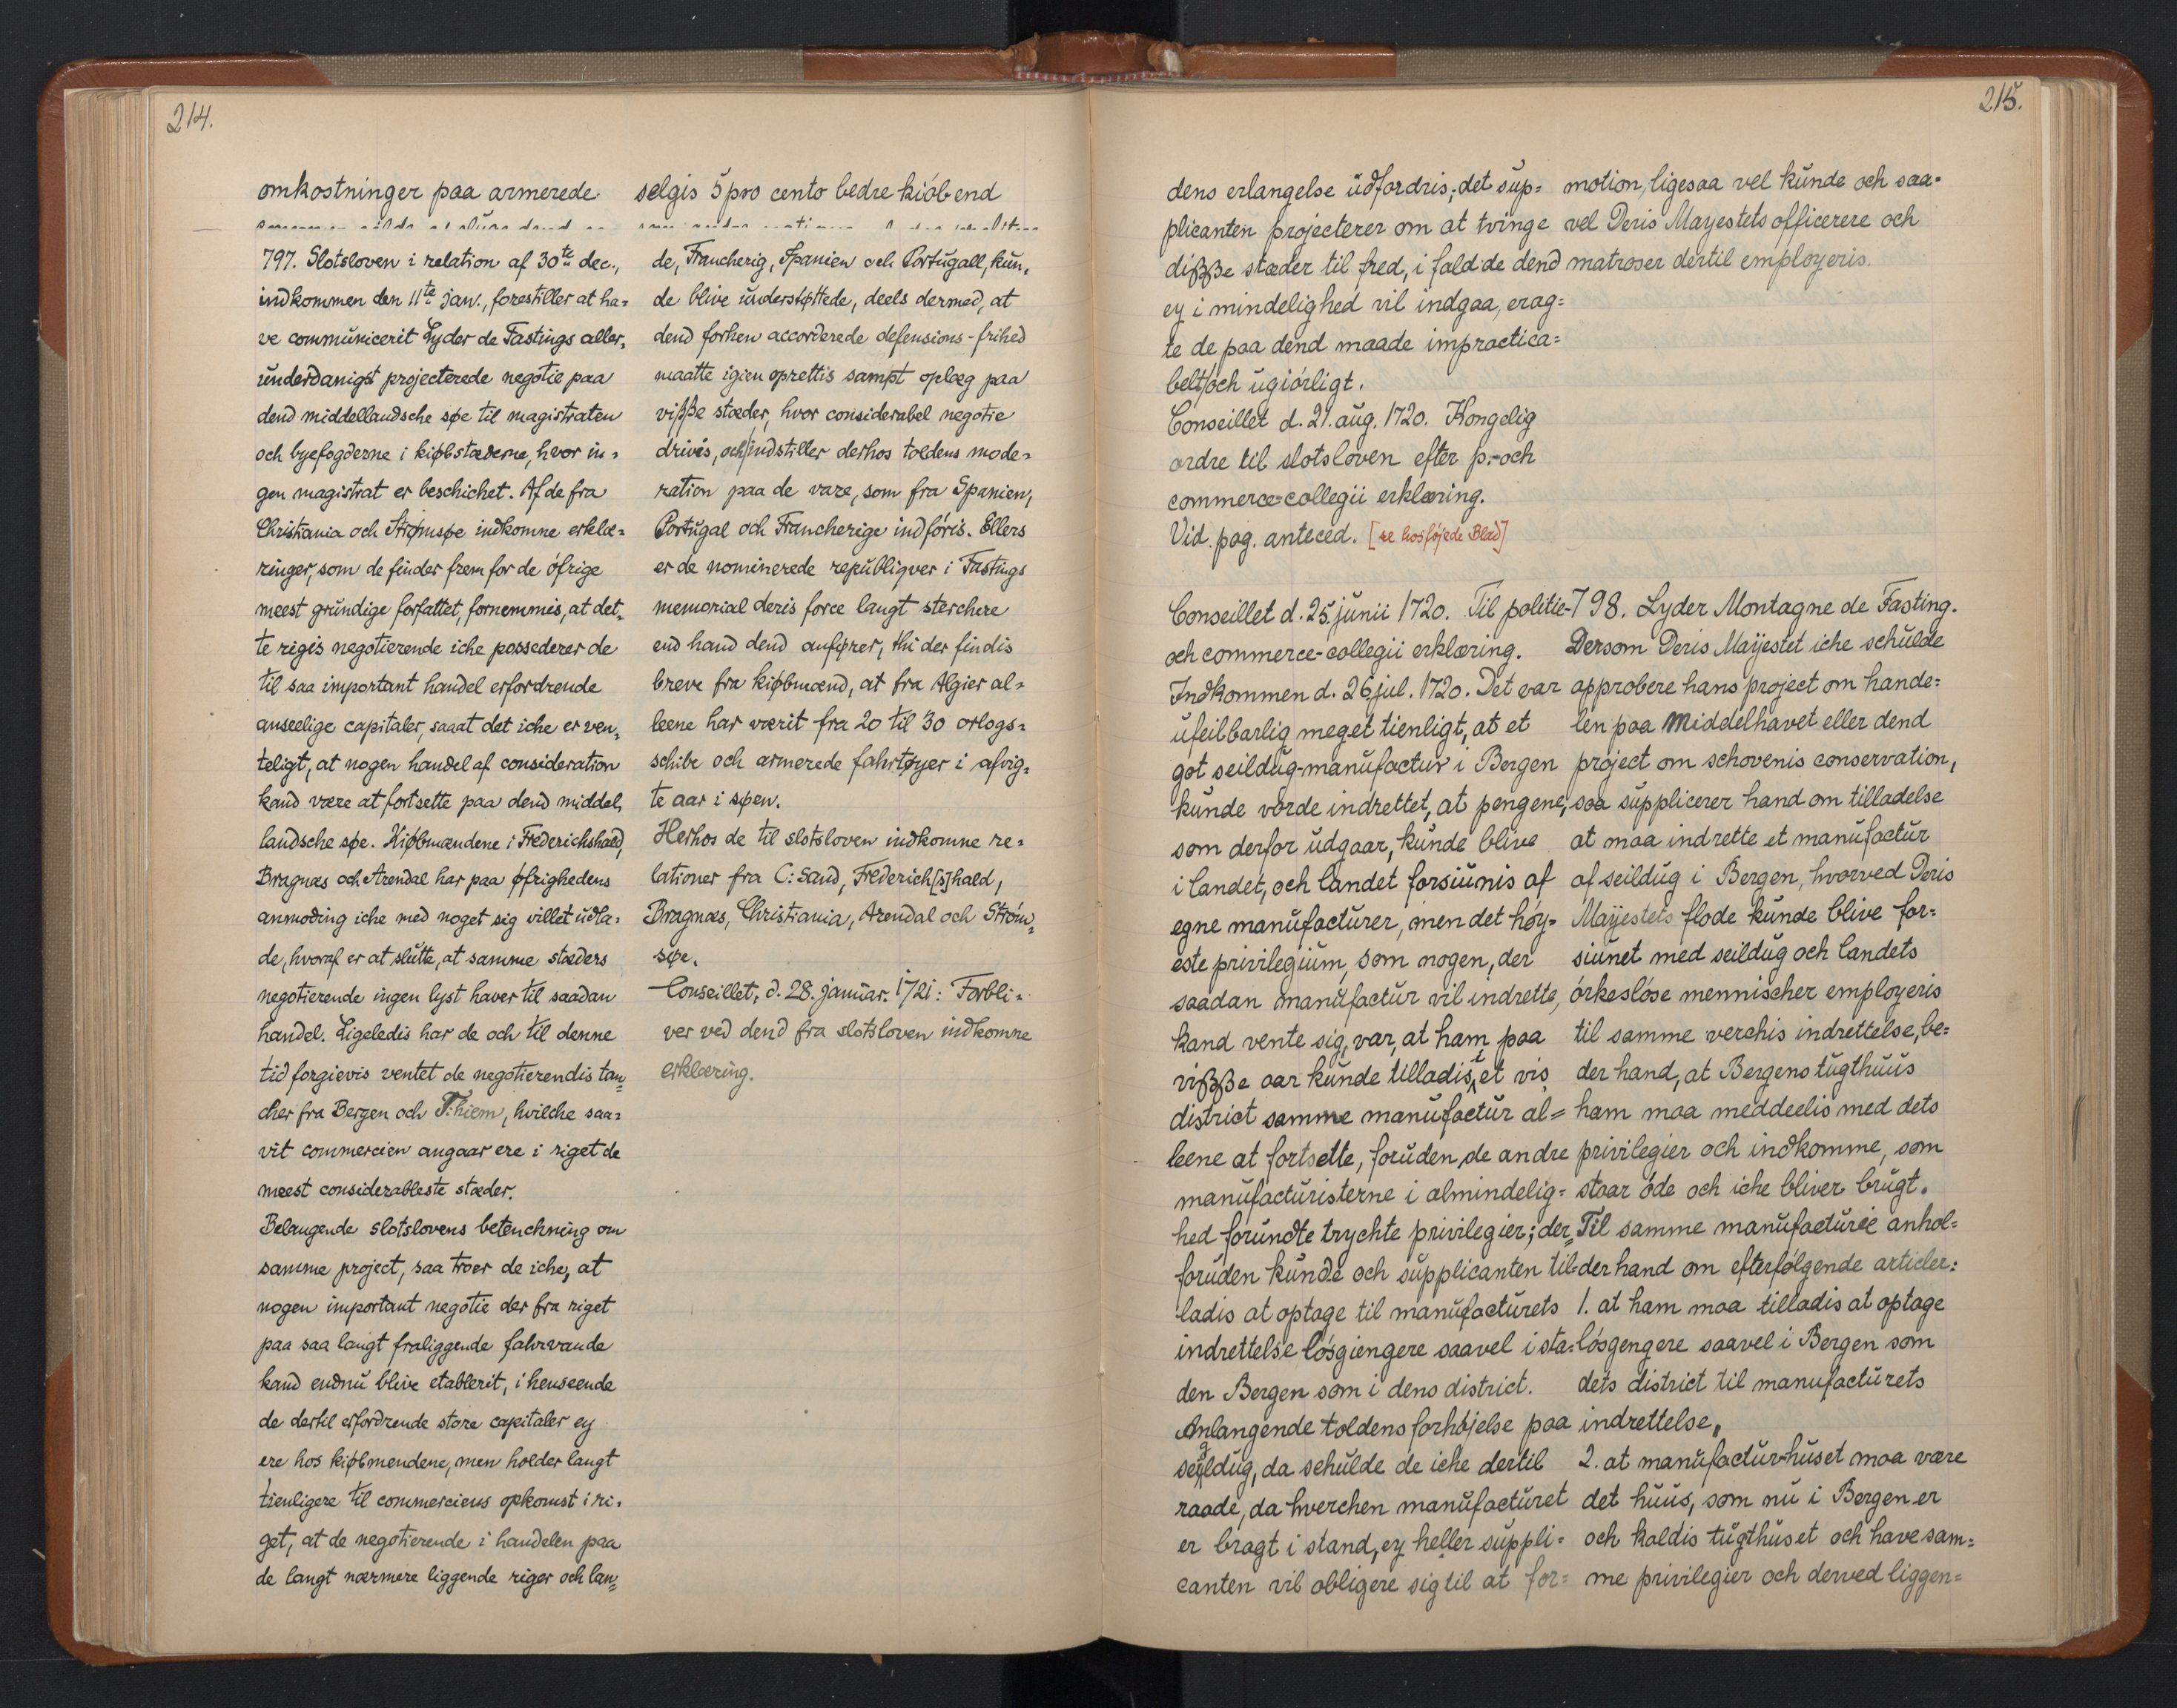 214.
omkostninger paa armerede
797. Slotsloven i relation af 30te dec.,
indkommen den 11te jan., forestiller at ha=
ve communicerit Lyder de Fastings aller=
underdanigst projecterede negotie paa
dend middellandsche søe til magistraten
och byefogderne i kiøbstæderne, hvor in=
gen magistrat er beschichet. Af de fra
Christiania och Strømsøe indkomne erklæ=
ringer, som de finder frem for de öfrige
meest grundige forfattet, fornemmis, at det=
te rigis negotierende iche possederer de
til saa important handel erfordrende
anseelige capitaler, saaat det iche er ven=
teligt, at nogen handel af consideration
kand være at fortsette paa dend middel=
landsche søe. Kiøbmændene i Frederichshald,
Bragnæs och Arendal har paa øfrighedens
anmoding iche med noget sig villet udla=
de, hvoraf er at slutte, at samme stæders
negotierende ingen lyst haver til saadan
handel. Ligeledis har de och til denne
tid forgievis ventet de negotierendis tan=
cher fra Bergen och T:hiem, hvilche saa=
vit commercien angaar ere i riget de
meest considerableste stæder.
Belangende slotslovens betenchning om
samme project, saa troer de iche, at
nogen important negotie der fra riget
paa saa langt fraliggende fahrvande
kand endnu blive etablerit, i henseende
de dertil erfordrende store capitaler ey
ere hos kiøbmendene, men holder langt
tienligere til commerciens opkomst i ri=
get, at de negotierende i handelen paa
de langt nærmere liggende riger och lan=
selgis 5 pro cento bedre kiöb end
de, Francherig, Spanien och Portugall, kun=
de blive understøttede, deels dermed, at
dend forhen accorderede defensions-frihed
maatte igien oprettis sampt oplæg paa
visse stæder, hvor considerabel negotie
drives, och indstiller derhos toldens mode=
ration paa de vare, som fra Spanien,
Portugal och Francherige indföris. Ellers
er de nominerede republiqver i Fastings
memorial deris force langt sterchere
end hand dend anfører, thi der findis
breve fra kiøbmænd, at fra Algier al=
leene har værit fra 20 til 30 orlogs=
schibe och armerede fahrtøyer i afvig=
te aar i søen.
Herhos de til slotsloven indkomne re=
lationer fra C: sand, Frederich[s]hald,
Bragnæs, Christiania, Arendal och Ström=
søe.
Conseillet, d. 28. januar. 1721: Forbli=
ver ved dend fra slotsloven indkomne
erklæring.
215.
dens erlangelse udfordris; det sup=
plicanten projecterer om at tvinge
disse stæder til fred, i fald de dend
ey i mindelighed vil indgaa, erag=
te de paa dend maade impractica=
belt och ugiörligt.
Conseillet d. 21. aug. 1720. Kongelig
ordre til slotsloven efter p.- och
commerce-collegii erklæring.
Vid. pag. anteced. [se hosföjede Blad]
motion, ligesaa vel kunde och saa=
vel Deris Mayestets officerere och
matroser dertil employeris.
Conseillet d. 25. junii 1720. Til politie-
och commerce-collegii erklæring.
Indkommen d. 26 jul. 1720. Det var
ufeilbarlig meget tienligt, at et
got seildug-manufactur i Bergen
kunde vorde indrettet, at pengene,
som derfor udgaar, kunde blive
i landet, och landet forsiunis af
egne manufacturer, men det höy=
este privilegium, som nogen, der
saadan manufactur vil indrette,
kand vente sig, var, at ham paa
visse aar kunde tilladis, et vis
district samme manufactur al=
leene at fortsette, foruden de andre
manufacturisterne i almindelig=
hed forundte trychte privilegier; der=
foruden kunde och supplicanten til=
ladis at optage til manufacturets
indrettelse lösgiengere saavel i sta=
den Bergen som i dens district.
Anlangende toldens forhöjelse paa
seyldug, da schulde de iche dertil
raade, da hverchen manufacturet
er bragt i stand, ey heller suppli=
canten vil obligere sig til at for=
798. Lyder Montagne de Fasting.
Dersom Deris Mayestet iche schulde
approbere hans project om hande=
len paa Middelhavet eller dend
project om schovenis conservation,
saa supplicerer hand om tilladelse
at maa indrette et manufactur
af seildug i Bergen, hvorved Deris
Mayestets flode kunde blive for=
siunet med seildug och landets
örkeslöse mennischer employeris
til samme verchis indrettelse, be=
der hand, at Bergens tugthuus
ham maa meddeelis med dets
privilegier och indkomme, som
staar öde och iche bliver brugt.
Til samme manufacturie anhol=
der hand om efterfølgende articler:
1. at ham maa tilladis at optage
lösgengere saavel i Bergen som
dets district til manufacturets
indrettelse.
2. at manufactur-huset maa være
det huus, som nu i Bergen er
och kaldis tugthuset och have sam=
me privilegier och derved liggen=